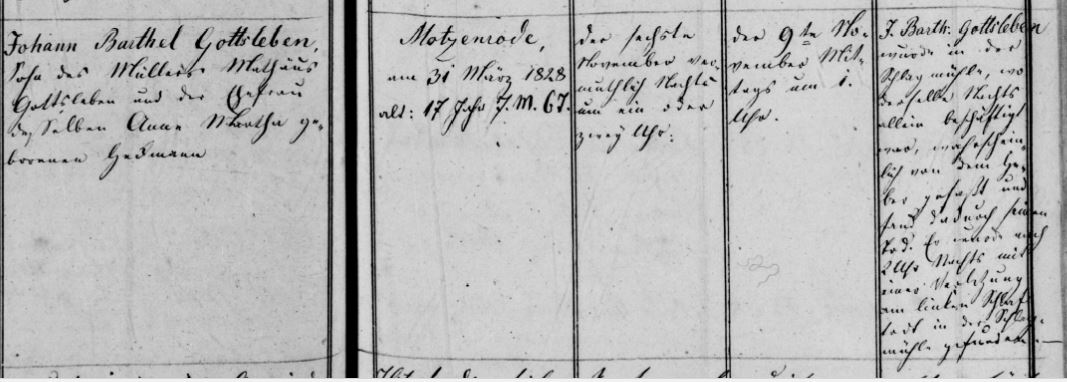 Johann Barthel Gottsleben,
Sohn des Müllers Mathäus
Gottsleben und der Ehefrau
desselben Anna Martha ge-
borenen Heckmann
Motzenrode,
am 31 März 1828
alt: 17 Jahr 7 M. 6 T.
der sechste
November ver-
muthlich Nachts
um ein oder
zwey Uhr.
der 9te No-
vember Mit-
tags um 1.
Uhr.
J. Barth: Gottsleben
wurde in der
Schlagmühle, wo
derselbe Nachts
allein beschäftigt
war, wahrschein-
lich von dem He-
ber gefaßt und
fand dadurch seinen
Tod. Er wurde nach
2 Uhr Nachts mit
einer Verletzung
am linken Schlaf
todt in der Schlag-
mühle gefunden.